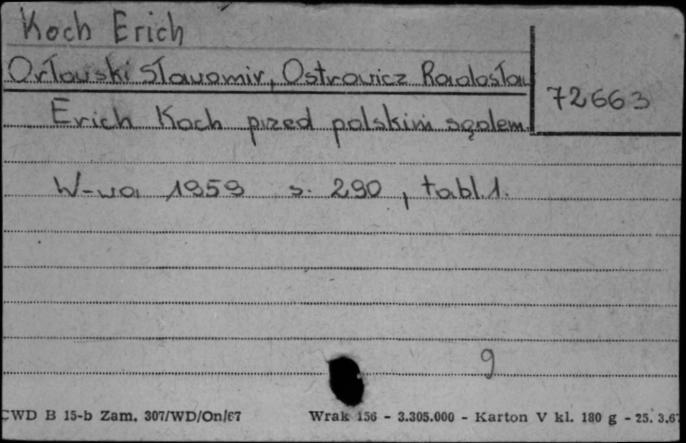 Koch Erich
Orłowski Sławomir, Ostrowicz Radosław
72663
Erich Koch przed polskim sądem.
W-wa 1959 s. 290, tabl.1.
9
CWD B 15-b Zam. 307/WD/On/67 Wrak 156 - 3.305.000 - Karton V kl. 180 g - 25. 3.67